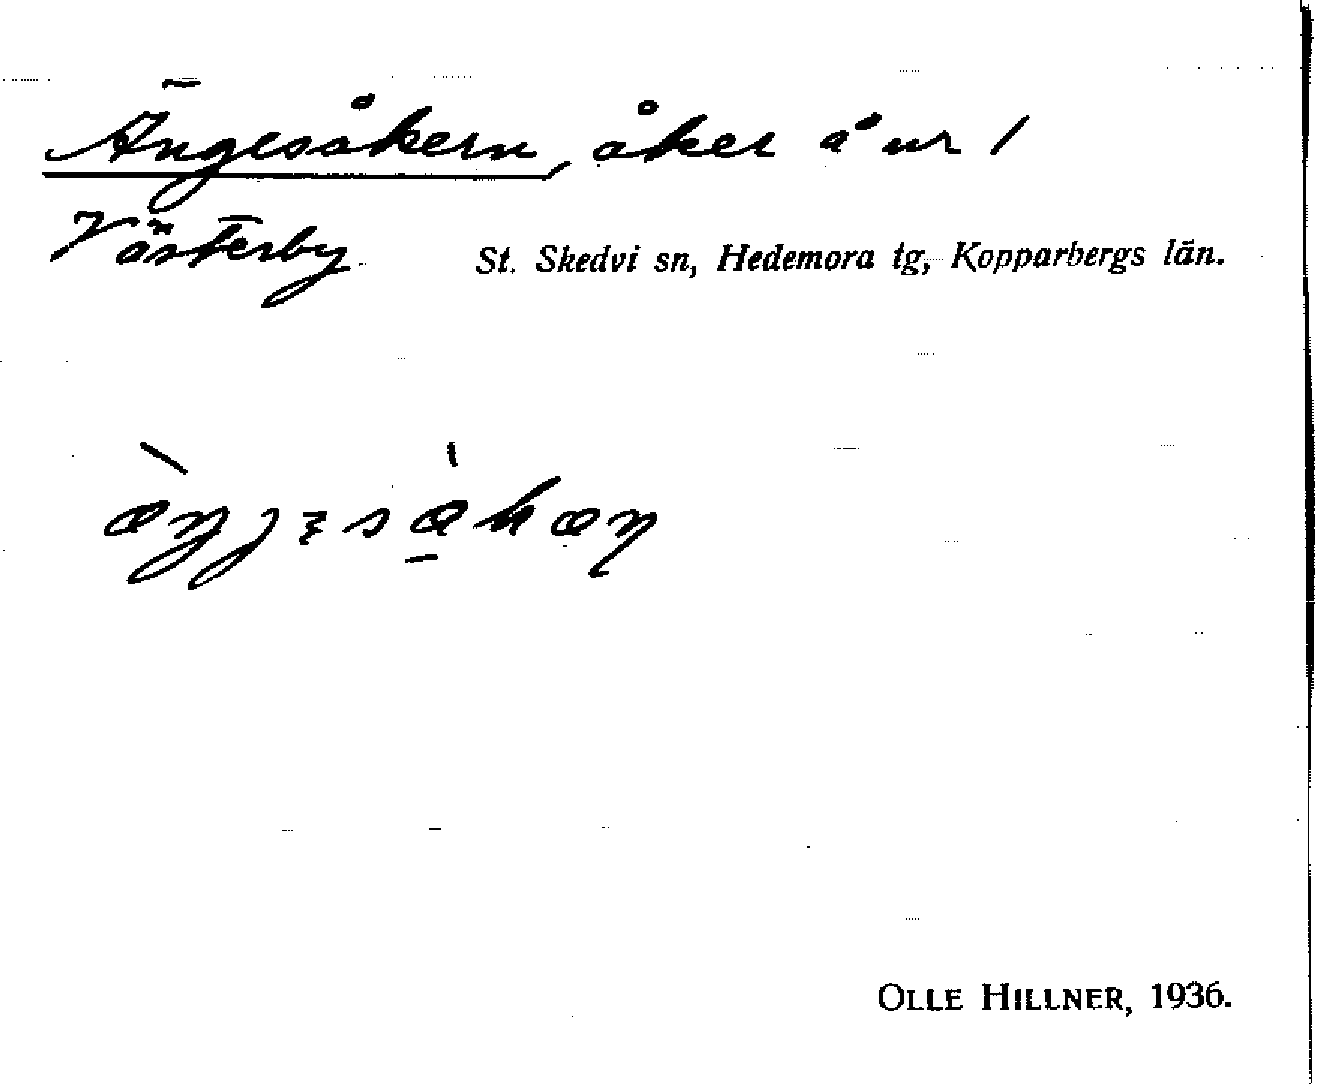 Ängesåkern, åker å nr 1
Västerby St. Skedvi sn, Hedemora tg, Kopparbergs län.
OLLE HILLNER, 1936.